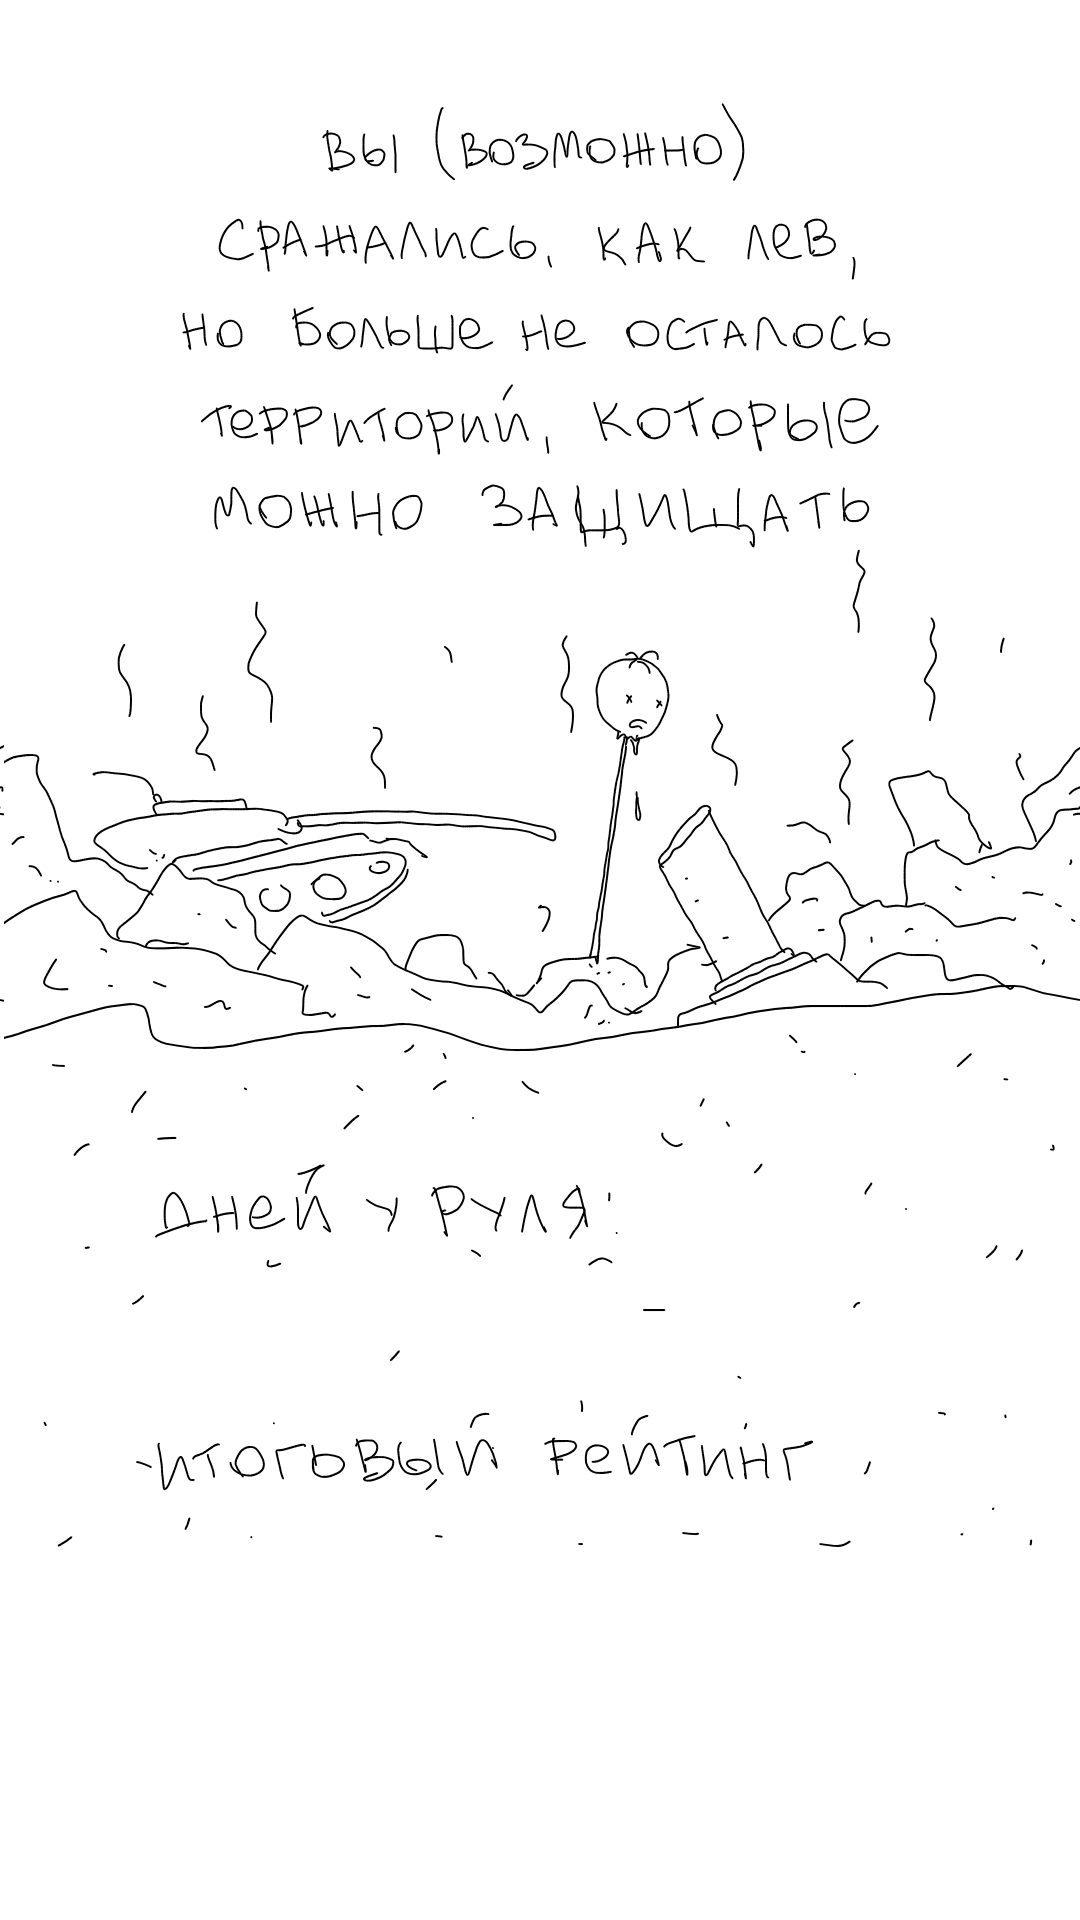 Вы (возможно)
сражались, как лев,
но больше не осталось
территорий, которые
можно защищать
Дней у руля:
Итоговый рейтинг